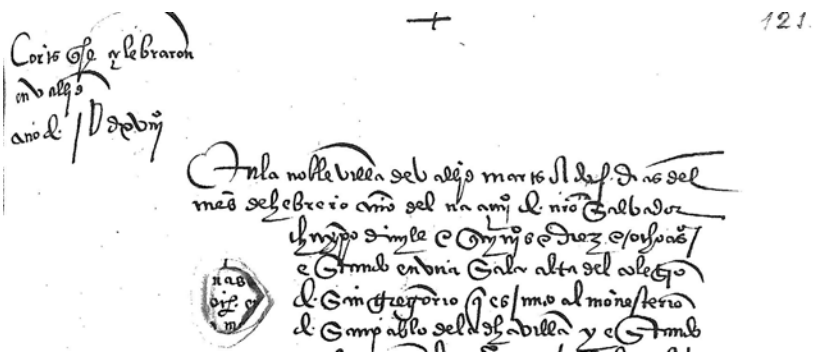 121
Cortes q̃ se çelebraron
en vallid
año d. I D xviijº
En la noble villa de vallid martes dos dias del
mes de hebrero año del naçimiº d. nrõ Salvador
ihũxpo de mjle e quinjºs e diez e ocho años
estando en una Sala alta del colegio
de San gregorio q̃ es junto al monesterio
de Sam pablo de la dha villa y estando